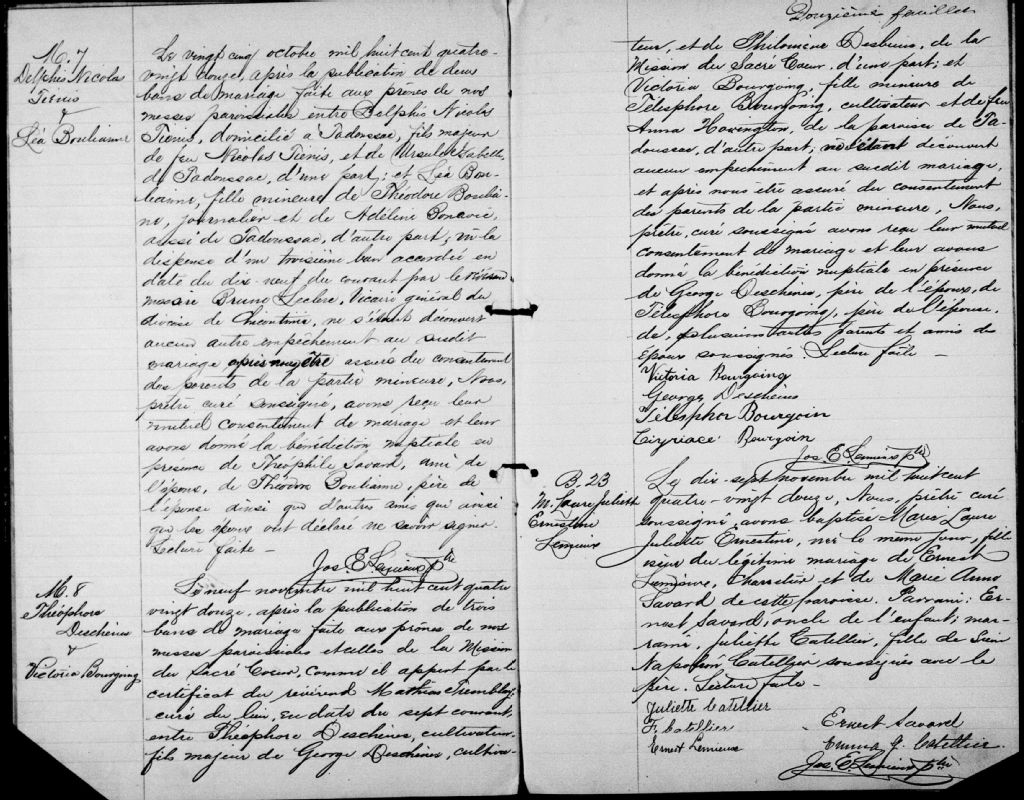 M. 7
Delphis Nicolas
Tienis
&
Léa Boulianne
Le vingt cinq octobre mil huit cent quatre-
vingt douze, après la publication de deux
bans de mariage faite aux prônes de nos
messes paroissiales entre Delphis Nicolas
Tienis, domicilié à Tadoussac, fils majeur
de feu Nicolas Tienis, et de Ursule
de Tadoussac, d'une part; et Léa Bou-
lianne, fille mineure de Théodore Boulia-
ne, journalier et de Adéline
aussi de Tadoussac, d'autre part; vu la
dispense d'un troisième ban accordée en
date du dix neuf du courant par le révérend
messire Bruno Leclerc, Vicaire général du
diocèse de Chicoutimi, ne s'étant découvert
aucun autre empêchement au susdit
mariage après nous être assuré du consentement
des parents de la partie mineure, Nous,
prêtre curé soussigné, avons reçu leur
mutuel consentement de mariage et leur
avons donné la bénédiction nuptiale en
présence de Théophile Savard, ami de
l'époux, de Théodore Boulianne, père de
l'épouse ainsi que d'autres amis qui ainsi
que les époux ont déclaré ne savoir signer.
Lecture faite -
Jos. E. Lemieux ptre
M. 8
Théophore
Deschènes
&
Victoria Bourgoing
Le neuf novembre mil huit cent quatre
vingt douze, après la publication de trois
bans de mariage faite aux prônes de nos
messes paroissiales et celles de la Mission
du Sacré Coeur, comme il appert par le
certificat du révérend Mathias Tremblay
curé du lieu, en date du sept courant,
entre Théophore Deschènes, cultivateur,
fils majeur de George Deschènes, cultiva-
Douzième feuillet
teur, et de Philomène Desbiens, de la
Mission du Sacré Coeur, d'une part; et
Victoria Bourgoing, fille mineure de
Télesphore Bourgoing, cultivateur et de feu
Anna Hovington, de la paroisse de Ta-
doussac, d'autre part; ne s'étant découvert
aucun empêchement au susdit mariage,
et après nous être assuré du consentement
des parents de la partie mineure, Nous,
prêtre, curé soussigné avons reçu leur mutuel
consentement de mariage et leur avons
donné la bénédiction nuptiale en présence
de George Deschènes, père de l'époux, de
Télesphore Bourgoing, père de l'épouse,
de plusieurs autres parents et amis des
époux soussignés. Lecture faite -
Victoria Bourgoing
George Deschènes
Télesphor Bourgoin
Ciryriace Bourgoin
Jos. E. Lemieux ptre
B. 23
M. Laure Juliette
Ernestine
Lemieux
Le dix-sept novembre mil huit cent
quatre-vingt douze, Nous, prêtre curé
soussigné avons baptisé Marie Laure
Juliette Ernestine, née le même jour, fille
issue du légitime mariage de Ernest
Lemieux, et de Marie Anne
Savard de cette paroisse. Parrain: Er-
nest Savard, oncle de l'enfant; mar-
raine, Juliette Catellier, fille de
Napoléon Catellier soussignés avec le
père. Lecture faite -
Juliette Catellier
F. Catellier
Ernest Lemieux
Ernest Savard
Emma G. Catellier
Jos. E. Lemieux ptre